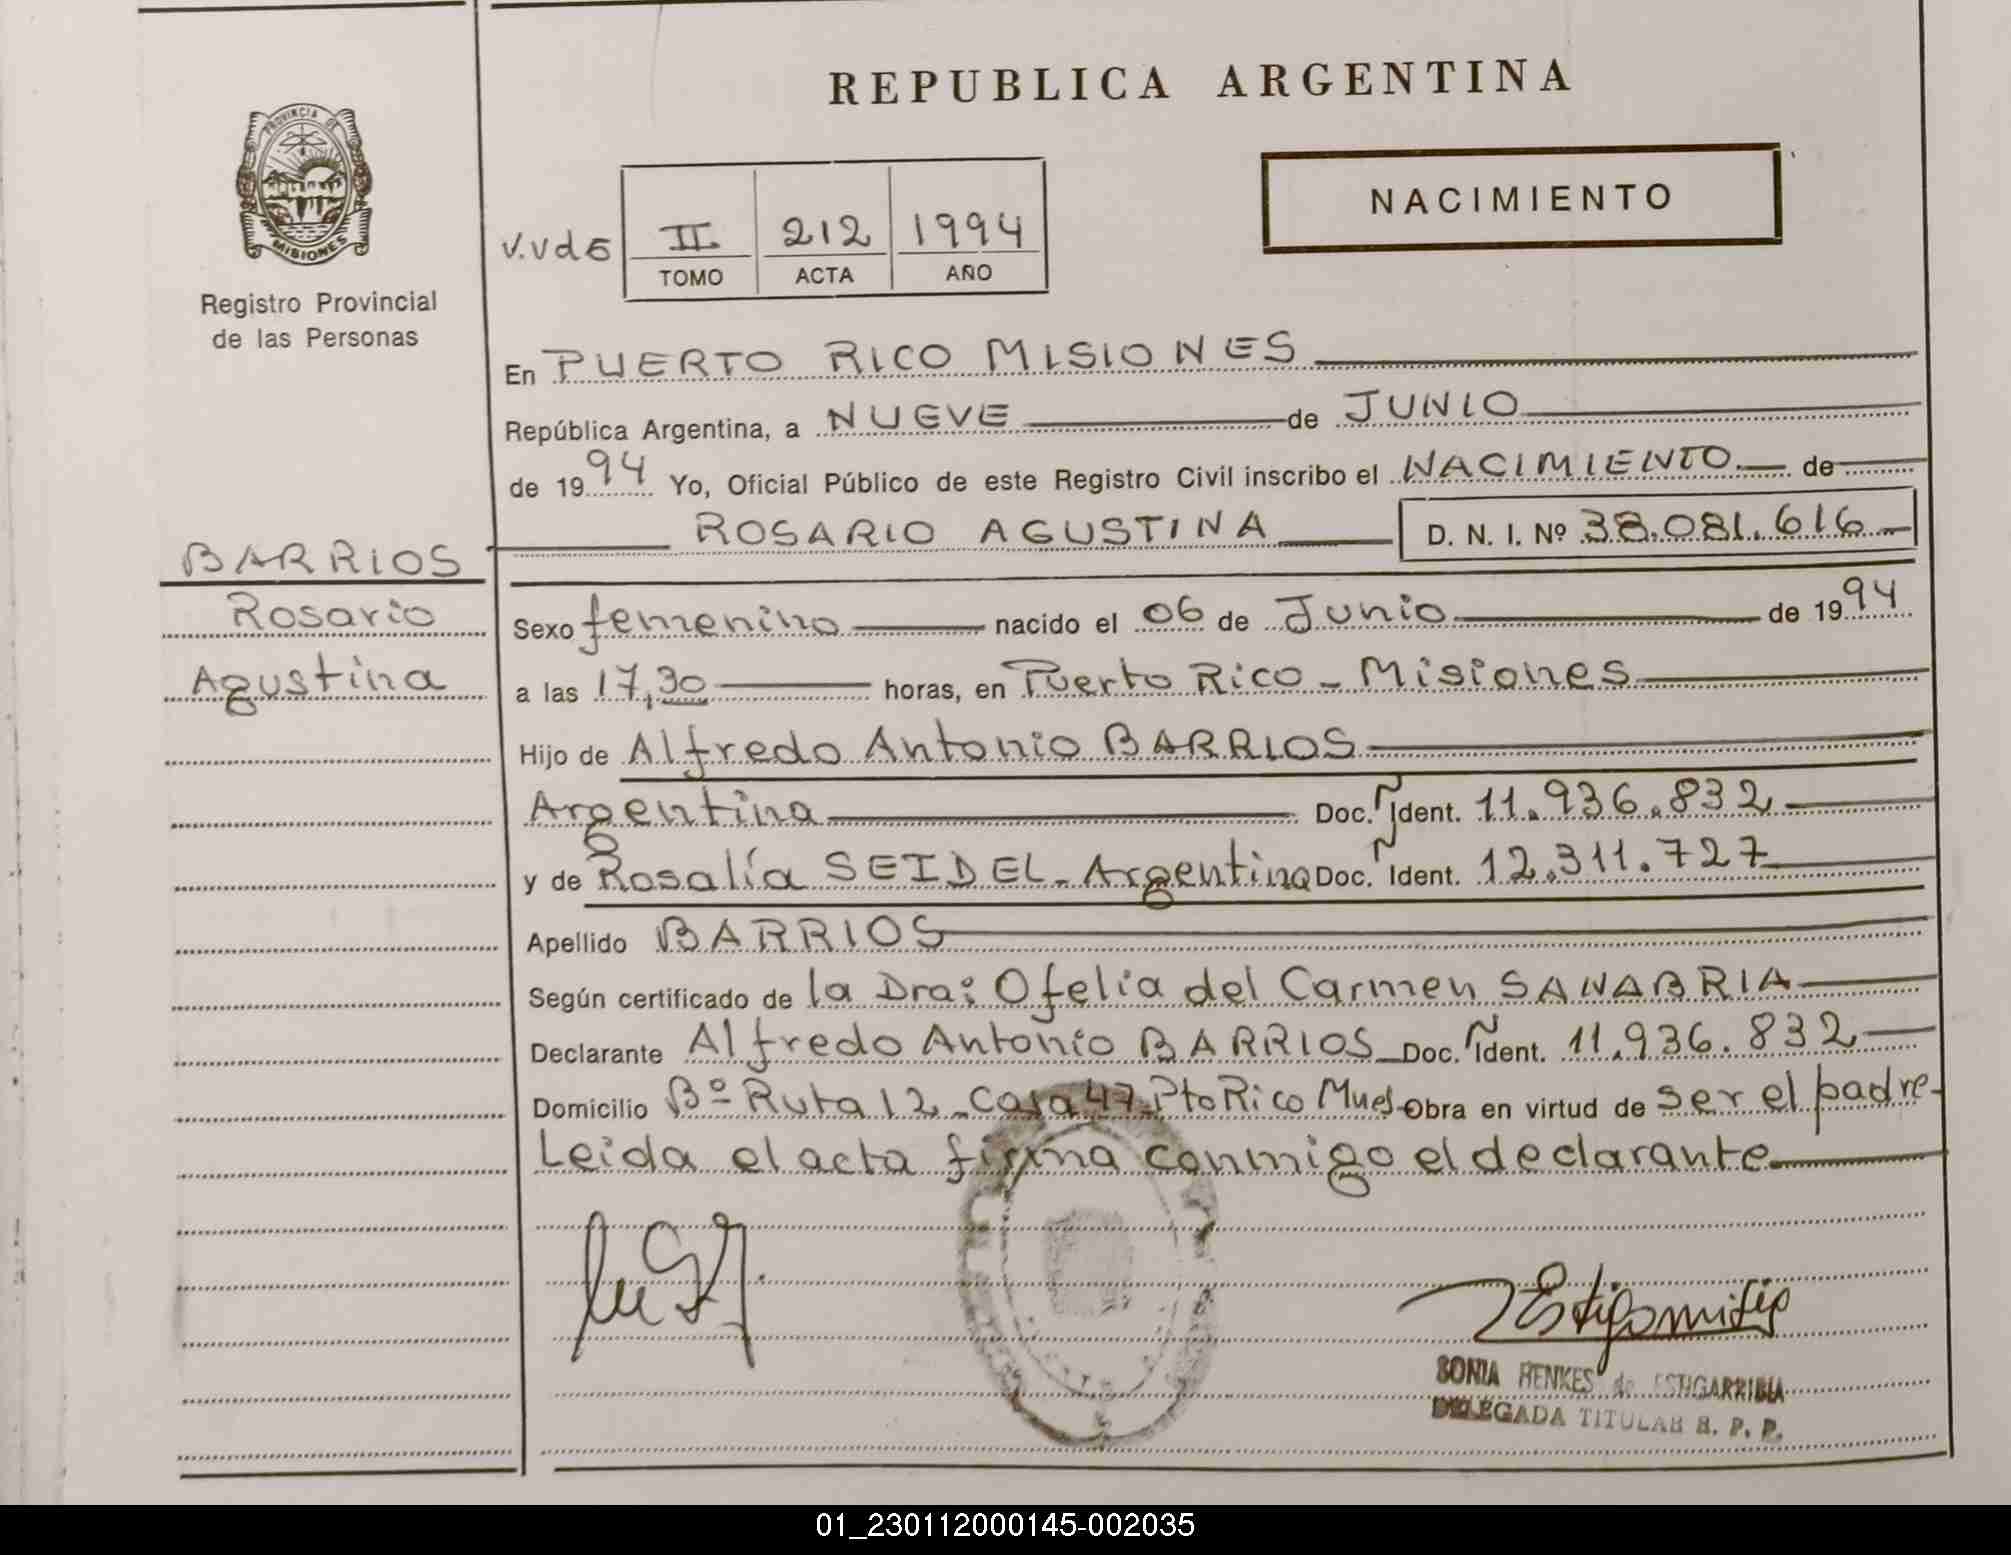 REPUBLICA ARGENTINA
PROVINCIA DE
MISIONES
Registro Provincial
de las Personas
NACIMIENTO
V.Vd6 II 212 1994
TOMO ACTA AÑO
En PUERTO RICO MISIONES
República Argentina, a NUEVE de JUNIO
de 1994 Yo, Oficial Público de este Registro Civil inscribo el NACIMIENTO de
ROSARIO AGUSTINA D. N. I. Nº 38.081.616
BARRIOS
Rosario
Agustina
Sexo femenino nacido el 06 de Junio de 1994
a las 17,30 horas, en Puerto Rico - Misiones
Hijo de Alfredo Antonio BARRIOS
Argentina Doc. Ident. 11.936.832
y de Rosalía SEIDEL - Argentina Doc. Ident. 12.311.727
Apellido BARRIOS
Según certificado de la Dra: Ofelia del Carmen SANABRIA
Declarante Alfredo Antonio BARRIOS Doc. Ident. 11.936.832
Domicilio Bº Ruta 12 - Casa 47 - Pto Rico Mnes Obra en virtud de ser el padre-
Leida el acta firma conmigo el declarante
SONIA HENKES de ESTIGARRIBIA
DELEGADA TITULAR R. P. P.
01_230112000145-002035